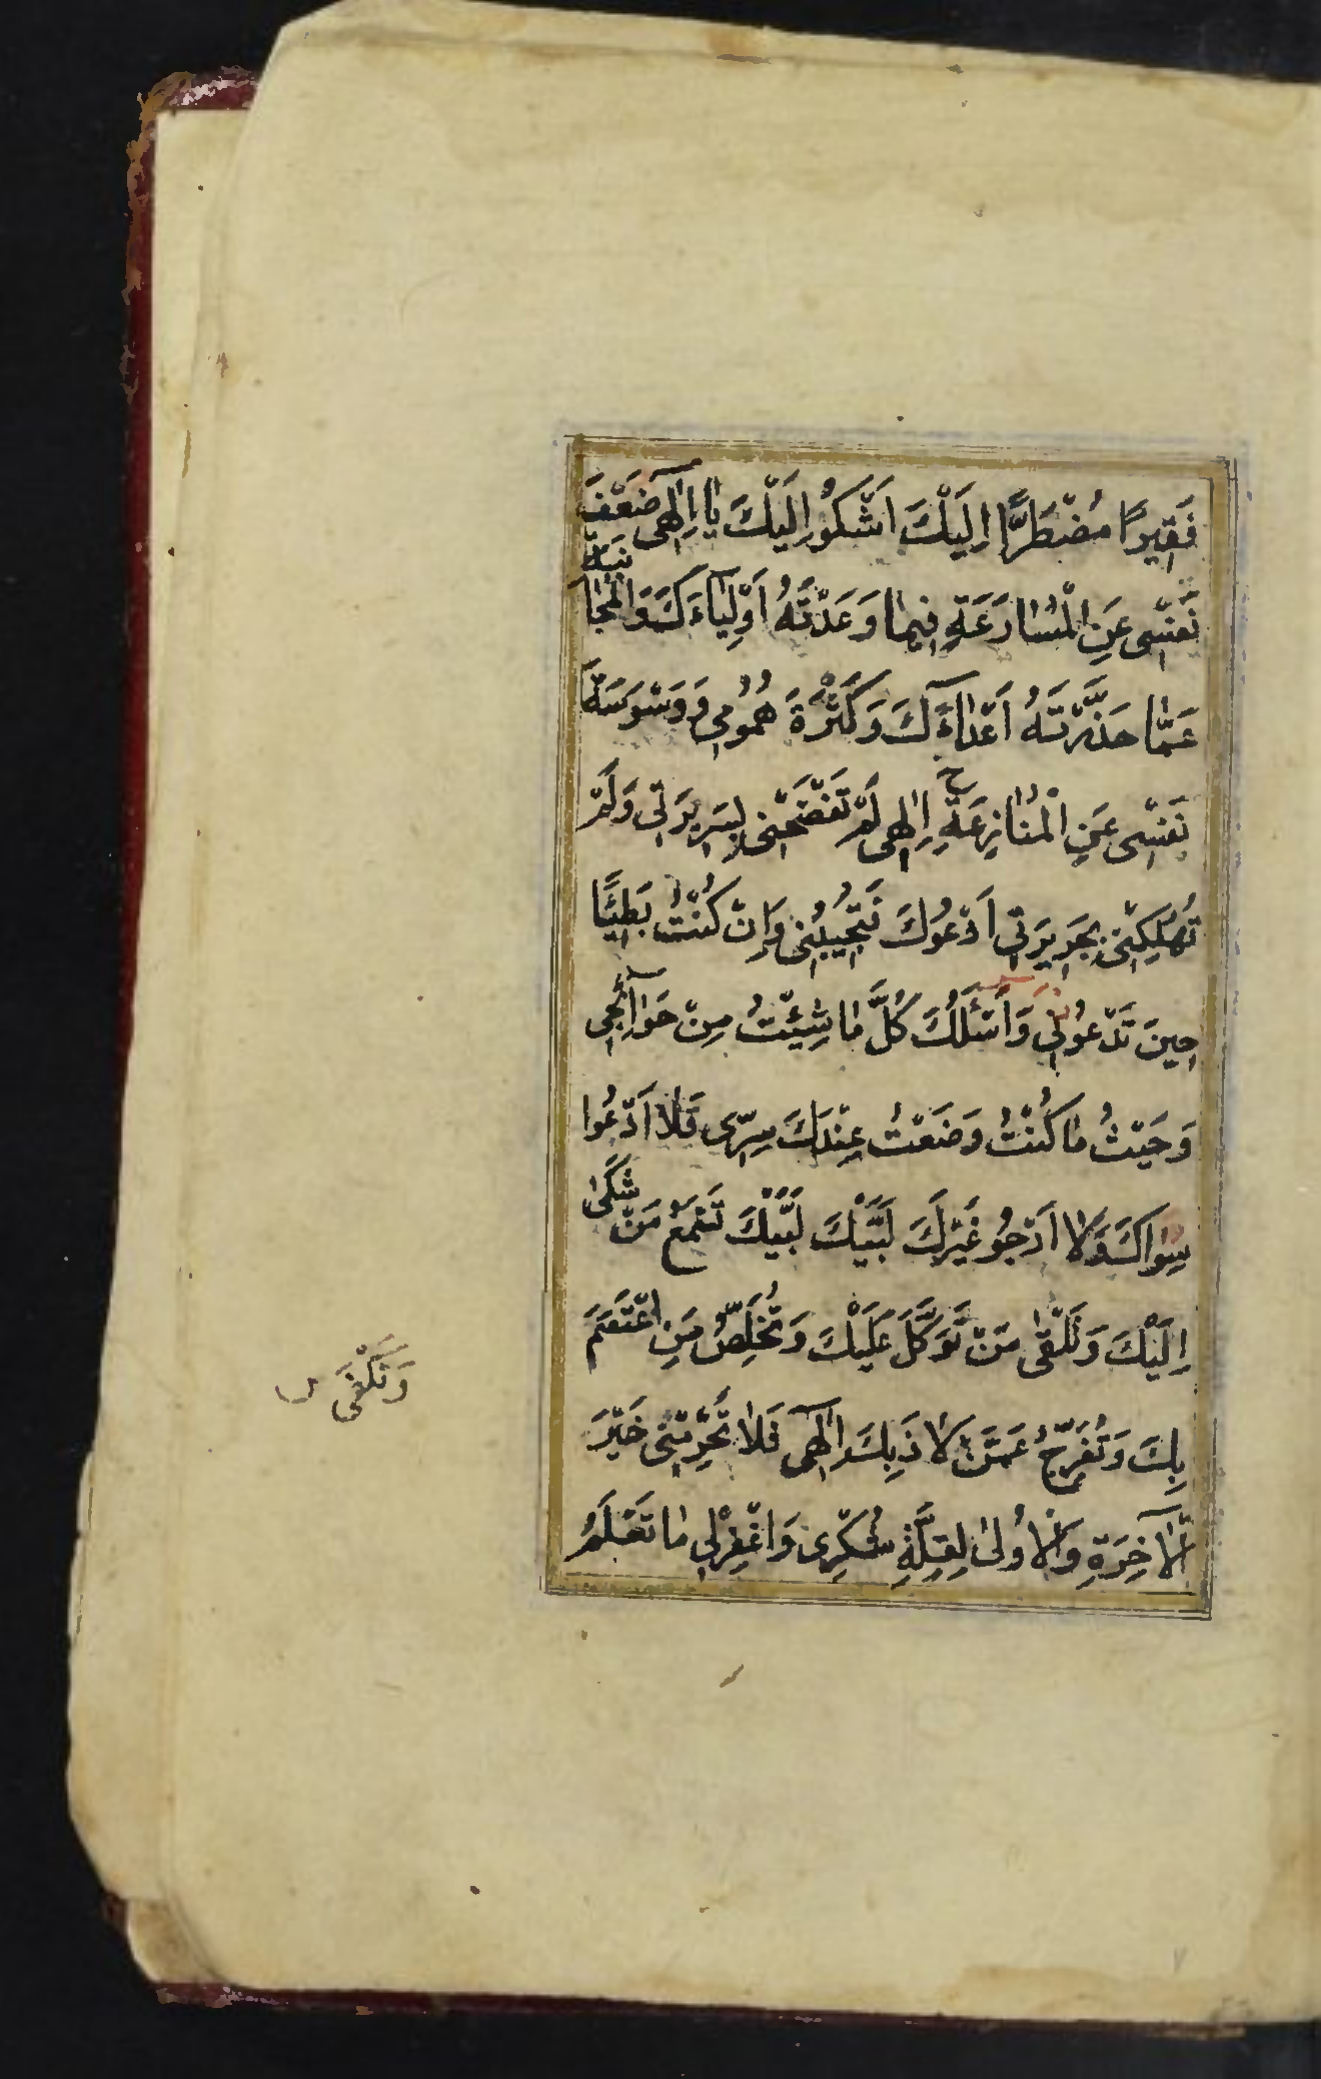 فَقِيرًا مُضْطَرًّا اِلَيْكَ اَشْكُوْ اِلَيْكَ يٰا اِلٰهِى ضَعْفَ
نَفْسِى عَنِ الْمُسٰارَعَةِ فِيمٰا وَعَدْتَهُ اَوْلِيٰآءَكَ وَالْمُجٰانَبَةِ
عَمّٰا حَذَّرْتَهُ اَعْدٰآءَكَ وَكَثْرَةَ هُمُومِى وَ وَسْوَسَةَ
نَفْسِى عَنِ الْمُنٰازِعَةِ اِلٰهِى لَمْ تَفْضَحْنِى بِسَرِيرَتِى وَلَمْ
تُهْلِكْنِى بِجَرِيرَتِى اَدْعُوكَ فَتُجِيبُنِى وَاِنْ كُنْتُ بَطِيئًا
حِينَ تَدْعُونِى وَاَسْئَلُكَ كُلَّ مٰا شِئْتُ مِنْ حَوٰآئِجِى
وَحَيْثُ مٰا كُنْتُ وَضَعْتُ عِنْدَكَ سِرِّى فَلٰا اَدْعُوا
سِوٰاكَ وَلٰا اَرْجُو غَيْرَكَ لَبَّيْكَ لَبَّيْكَ تَسْمَعُ مَنْ شَكٰى
اِلَيْكَ وَتَلْقٰى مَنْ تَوَكَّلَ عَلَيْكَ وَتُخَلِّصُ مَنِ اعْتَصَمَ
بِكَ وَتُفَرِّجُ عَمَّنْ لٰاذَ بِكَ اِلٰهِى فَلٰا تَحْرِمْنِى خَيْرَ
الْاٰخِرَةِ وَالْاُولٰى لِقِلَّةِ شُكْرِى وَاغْفِرْلِى مٰا تَعْلَمُ
وَتَكْفَى